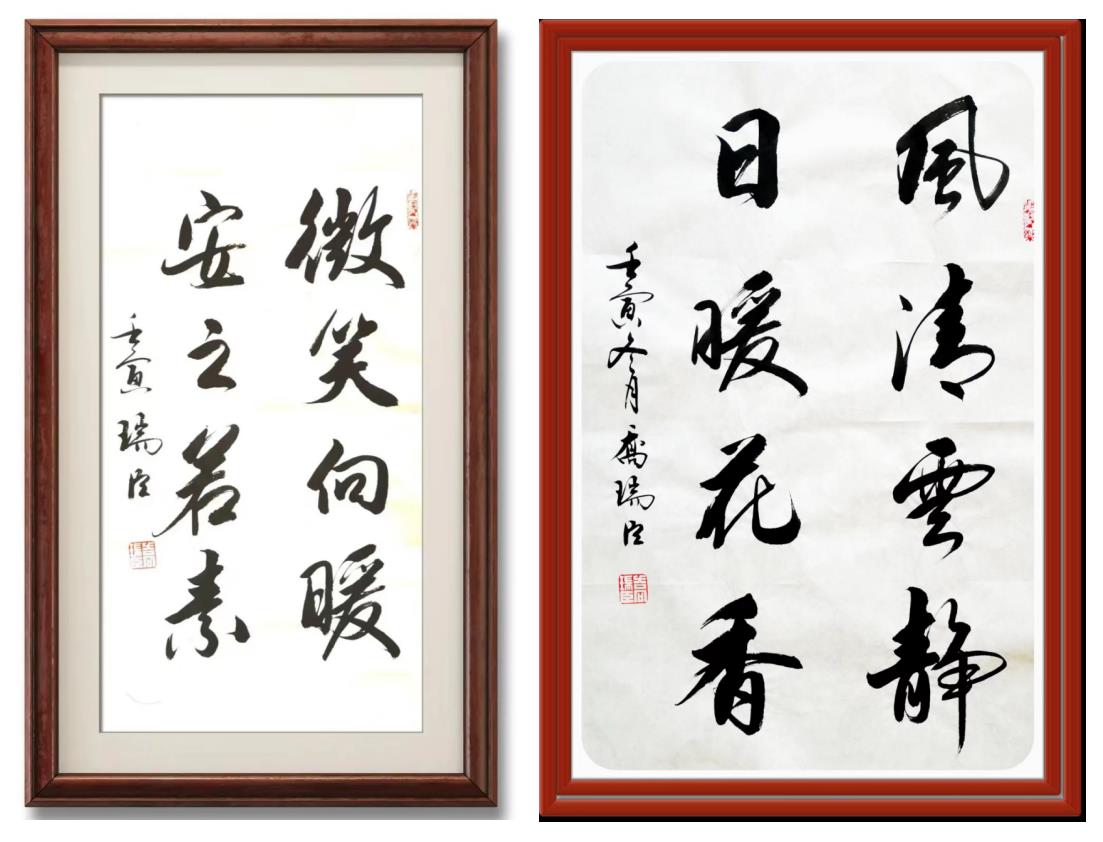 微笑向暖
安之若素
壬寅 瑞臣
風清雲静
日暖花香
壬寅冬月 喬瑞臣